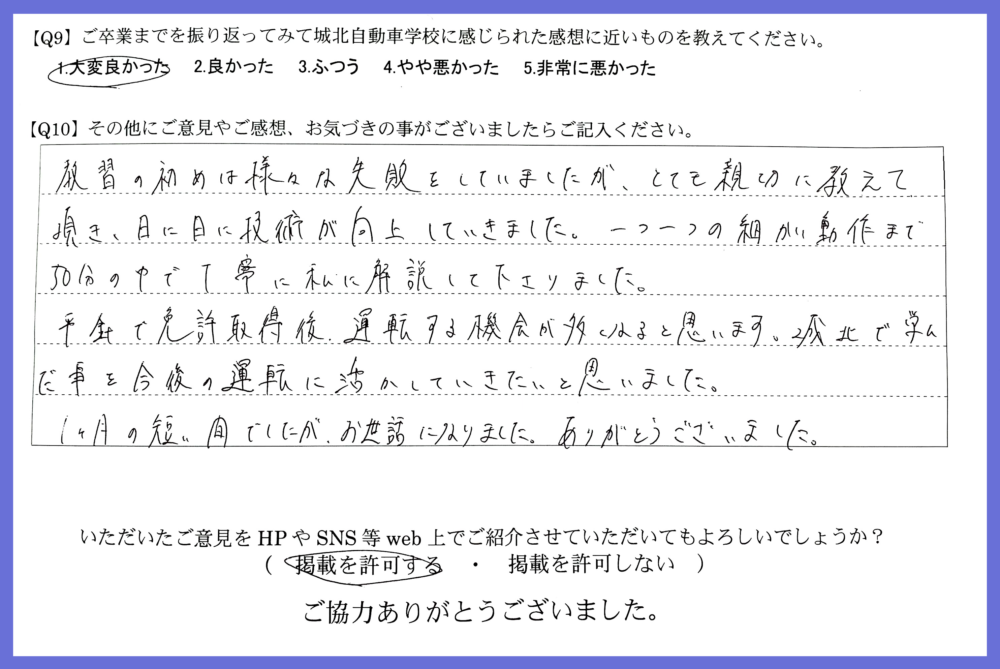 【Q9】ご卒業までを振り返ってみて城北自動車学校に感じられた感想に近いものを教えてください。
1.大変良かった 2.良かった 3.ふつう 4.やや悪かった 5.非常に悪かった
【Q10】その他にご意見やご感想、お気づきの事がございましたらご記入ください。
教習の初めは様々な失敗をしていましたが、とても親切に教えて
頂き、日に日に技術が向上していきました。一つ一つの細かい動作まで
50分の中で丁寧に私に解説して下さりました。
平針で免許取得後、運転する機会が多くなると思います。城北で学ん
だ事を今後の運転に活かしていきたいと思いました。
1ヶ月の短い間でしたが、お世話になりました。ありがとうございました。
いただいたご意見をHPやSNS等web上でご紹介させていただいてもよろしいでしょうか?
( 掲載を許可する ・ 掲載を許可しない )
ご協力ありがとうございました。